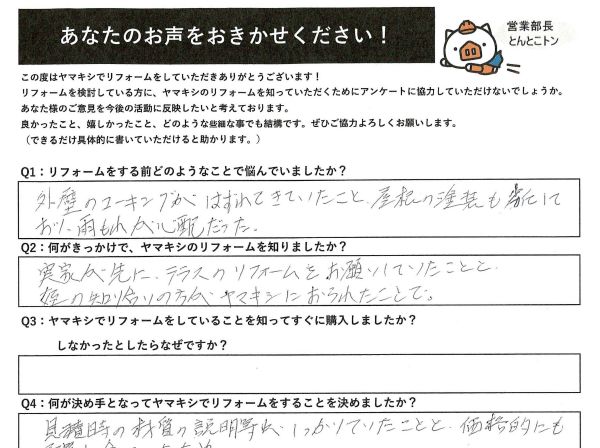 あなたのお声をおきかせください！
営業部長
とんとこトン
この度はヤマキシでリフォームをしていただきありがとうございます！
リフォームを検討している方に、ヤマキシのリフォームを知っていただくためにアンケートに協力していただけないでしょうか。
あなた様のご意見を今後の活動に反映したいと考えております。
良かったこと、嬉しかったこと、どのような些細な事でも結構です。ぜひご協力よろしくお願いします。
（できるだけ具体的に書いていただけると助かります。）
Q1：リフォームをする前どのようなことで悩んでいましたか？
外壁のコーキングがはずれてきていたこと、屋根の塗装も劣化して
おり、雨もれが心配だった。
Q2：何がきっかけで、ヤマキシのリフォームを知りましたか？
実家が先に、テラスのリフォームをお願いしていたことと、
の知り合いの方がヤマキシにおられたことで。
Q3：ヤマキシでリフォームをしていることを知ってすぐに購入しましたか？
しなかったとしたらなぜですか？
Q4：何が決め手となってヤマキシでリフォームをすることを決めましたか？
見積時の材質の説明等がしっかりしていたことと、価格的にも